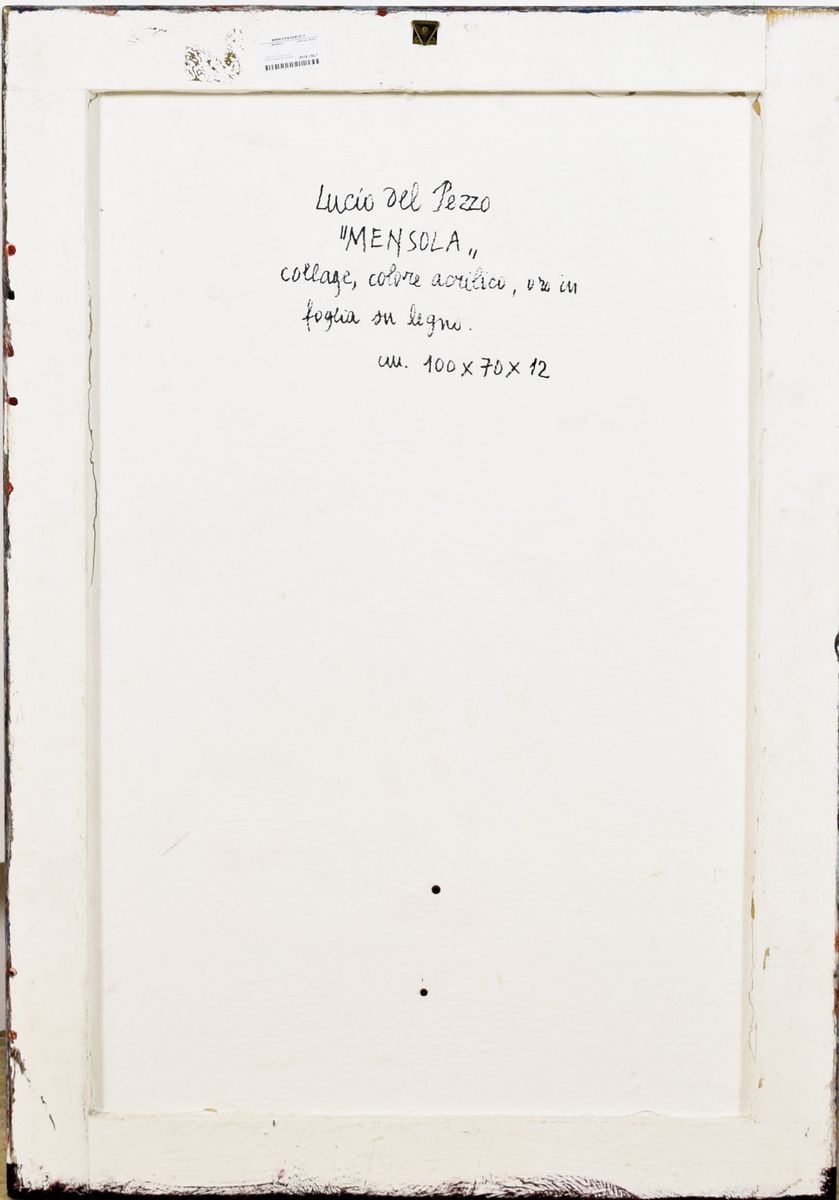 Lucio Del Pezzo
"MENSOLA„
collage, colore acrilico, oro in
foglia su legno.
cm. 100 x 70 x 12